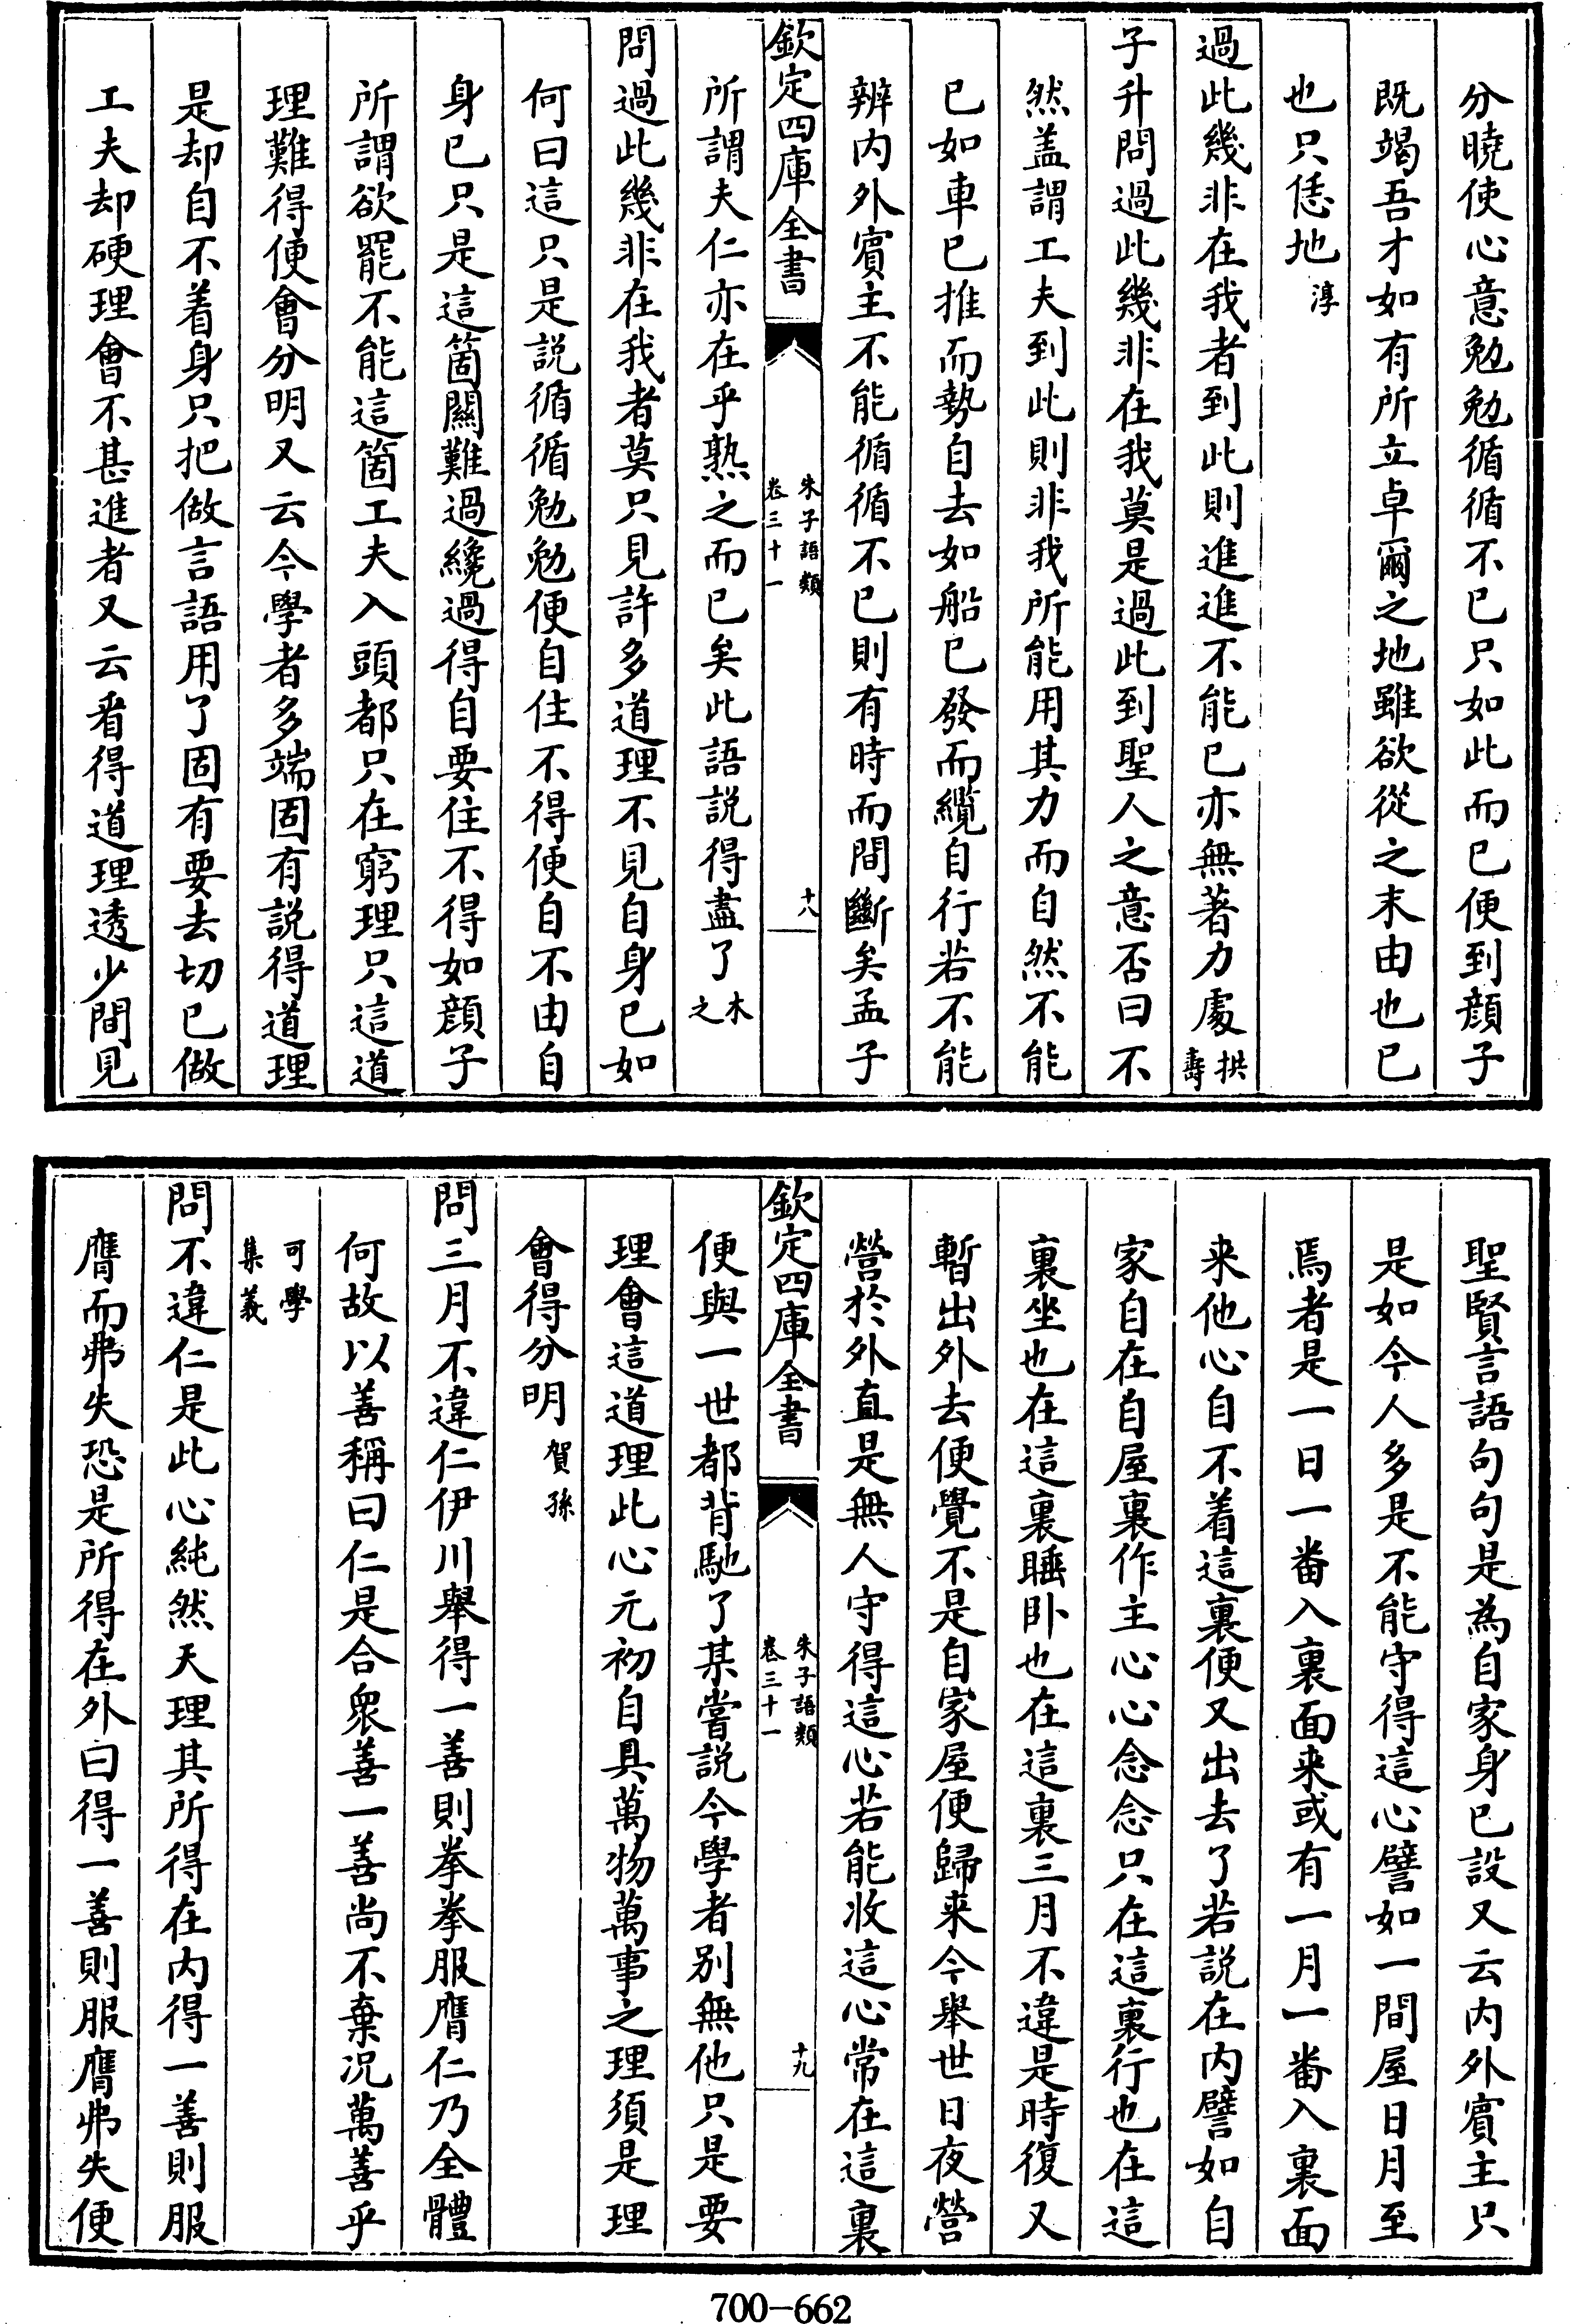 分曉使心意勉勉循循不已只如此而已便到顔子
既竭吾才如有所立卓爾之地雖欲從之末由也已
也只恁地淳
過此幾非在我者到此則進進不能已亦無著力處拱壽
子升問過此幾非在我莫是過此到聖人之意否曰不
然盖謂工夫到此則非我所能用其力而自然不能
已如車已推而勢自去如船已發而纜自行若不能
辨内外賓主不能循循不已則有時而間斷矣孟子
欽定四庫全書
朱子語類
卷三十一
十八
所謂夫仁亦在乎熟之而已矣此語説得盡了木之
問過此幾非在我者莫只見許多道理不見自身已如
何曰這只是説循循勉勉便自住不得便自不由自
身已只是這箇關難過纔過得自要住不得如顔子
所謂欲罷不能這箇工夫入頭都只在窮理只這道
理難得便會分明又云今學者多端固有説得道理
是却自不着身只把做言語用了固有要去切已做
工夫却硬理會不甚進者又云看得道理透少間見
聖賢言語句句是為自家身已設又云内外賓主只
是如今人多是不能守得這心譬如一間屋日月至
焉者是一日一番入裏面来或有一月一番入裏面
来他心自不着這裏便又出去了若説在内譬如自
家自在自屋裏作主心心念念只在這裏行也在這
裏坐也在這裏睡卧也在這裏三月不違是時復又
暫出外去便覺不是自家屋便歸来今舉世日夜營
營於外直是無人守得這心若能收這心常在這裏
欽定四庫全書
朱子語類
卷三十一
十九
便與一世都背馳了某嘗説今學者别無他只是要
理會這道理此心元初自具萬物萬事之理須是理
會得分明賀孫
問三月不違仁伊川舉得一善則拳拳服膺仁乃全體
何故以善稱曰仁是合衆善一善尚不棄况萬善乎
可學
集義
問不違仁是此心純然天理其所得在内得一善則服
膺而弗失恐是所得在外曰得一善則服膺弗失便
700-662